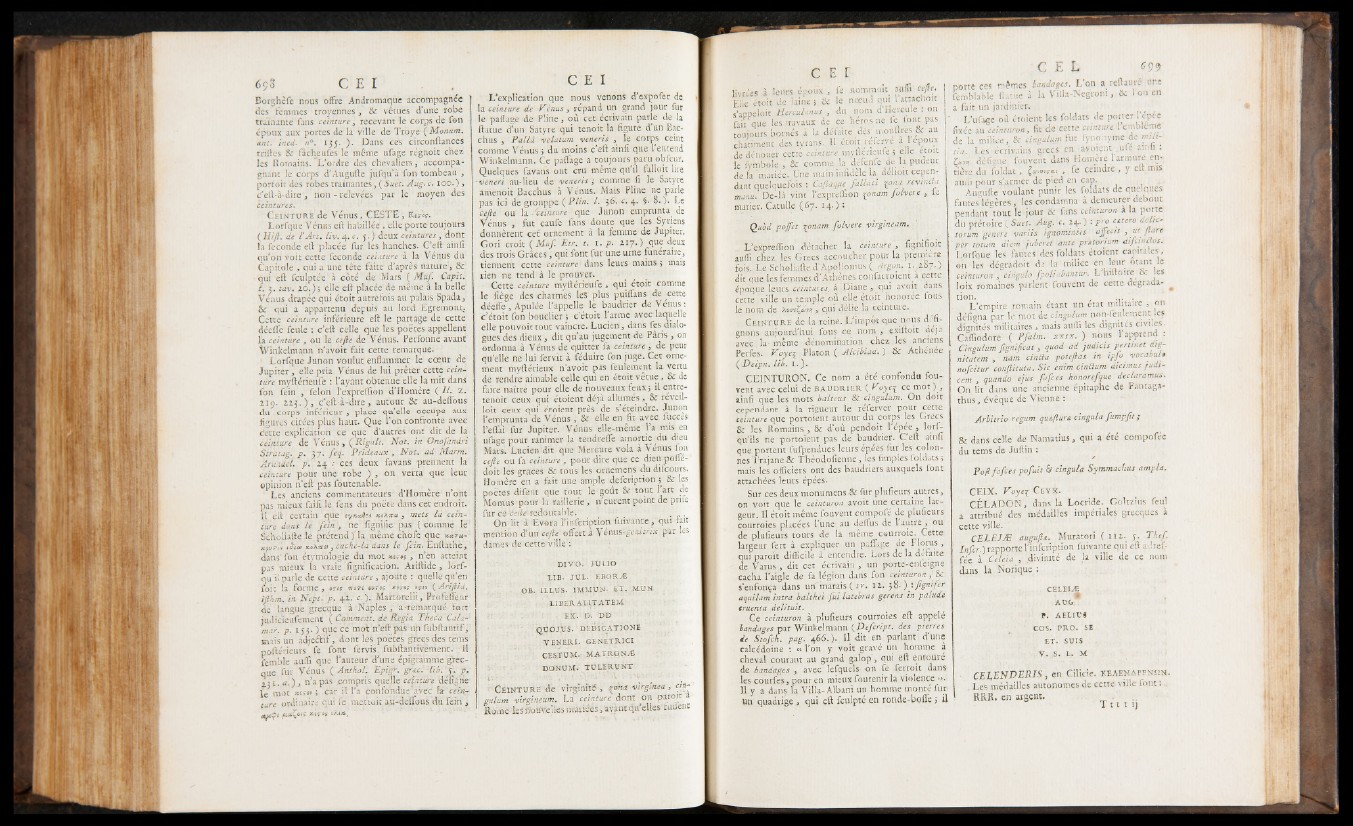 698 C E I
Borghèfe nous offre Andromaque accompagnée
des femmes troyennes, & vêtue d'une robe
traînante fans ceinture, recevant le corps de fon
époux aux portes de la ville de Troye (Monum.
ant. ined. n°. 135. ). Dans ces circonftances
triftes & fâcheufes le même ufage régnoit chez
les Romains. L'ordre des chevaliers, accompa-
gnant le corps d'Augufte jufqu'à fon tombeau,
portoit des robes traînantes, ( Suet. Aug. c. 100.),
c'eft-à-dire, non-relevées par le moyen des
ceintures.
CEINTURE de Vénus, CESTE,
Lorfque Vénus eft habillée, elle porte toujours
(Hift. de l'Art. liv. 4. c. 5.) deux ceintures, dont
la feconde eft placée fur les hanches. C'eft ainfi
qu'on voit cette feconde ceinture à la Vénus du
Capitole, qui a une tête faite d'après nature, &
qui eft fculptée à côté de Mars ( Muf. Capit.
t. 3. tav. 20.); elle eft placée de même à la belle
Vénus drapée qui étoit autrefois au palais Spada,
& qui a appartenu depuis au lord Egremont.
Cette ceinture inférieure eft le partage de cette
déeffe feule : c'eft celle que les poëtes appellent
la ceinture, ou le cefte de Vénus. Perfonne avant
Winkelmann n'avoit fait cette remarque.
Lorfque Junon voulut enflammer le cœur de
Jupiter, elle pria Vénus de lui prêter cette cein-
ture myftérieufe : l'ayant obtenue elle la mit dans
fon fein, felon l'expreffion d'Homère (Il. 2.
219. 223.), c'eft-à-dire, autour & au-deffous
du corps inférieur, place qu'elle occupe aux
figures citées plus haut. Que l'on confronte avec
cette explication ce que d'autres ont dit de la
ceinture de Vénus, (Rigalt. Not. in Onofandri
Stratag. p. 37. feq. Prideaux, Not. ad Marm.
Arundel. p. 24 : ces deux favans prennent la
ceinture pour une robe ), on verra que leur
opinion n'eft pas foutenable.
Les anciens commentateurs d'Homère n'ont
pas mieux faifi le fens du poëte dans cet endroit.
Il eft certain que mets la cein-
ture dans le fein, ne fignifie pas ( comme le
Scholiafte le prétend ) la même chofe que
cache-la dans le fein. Euftathe,
dans fon étymologie du mot n'en atteint
pas mieux la vraie fignification. Ariftide, lorf-
qu'il parle de cette ceinture, ajoute : quelle qu'en
foit la forme,
Martorelli, Profeffeur
de langue grecque à Naples, a remarqué fort
judicieufement (Comment. de Regia Theca Cala-
mar. p. 153.) que ce mot n'eft pas un fubftantif,
mais un adjectif, dont les poëtes grecs des tems
poftérieurs fe font fervis fubftantivement. Il
femble auffi que l'auteur d'une épigramme grec-
que fur Vénus ( Anthol. Epigr. græc. lib. 5. p.
231. a.), n'a pas compris quelle ceinture défigne
le mot car il l'a confondue avec la cein-
ture ordinaire qui fe mettoit au-deffous du fein,
C E I
L'explication que nous venons d'expofer de
la ceinture de Vénus, répand un grand jour fur
le paffage de Pline, où cet écrivain parle de la
ftatue d'un Satyre qui tenoit la figure d'un Bac-
chus, Pallâ velatum veneris, le corps ceint
comme Vénus ; du moins c'eft ainfi que l'entend
Winkelmann. Ce paffage a toujours paru obfcur.
Quelques favans ont cru même qu'il falloit lire
veneri au-lieu de veneris ; comme fi le Satyre
amenoit Bacchus à Vénus. Mais Pline ne parle
pas ici de grouppe ( Plin. l. 36. c. 4. §. 8. ). Le
cefte ou la ceinture que Junon emprunta de
Vénus, fut caufe fans doute que les Syriens
donnèrent cet ornement à la femme de Jupiter.
Gori croit ( Muf. Etr. t. 1. p. 217. ) que deux
des trois Grâces, qui font fur une urne funéraire,
tiennent cette ceinture dans leurs mains ; mais
rien ne tend à le prouver.
Cette ceinture myftérieufe, qui étoit comme
le fiège des charmes les plus puiffans de cette
déeffe, Apulée l'appelle le baudrier de Vénus :
c'étoit fon bouclier ; c'étoit l'arme avec laquelle
elle pouvoit tout vaincre. Lucien, dans fes dialo-
gues des dieux, dit qu'au jugement de Pâris, on
ordonna à Vénus de quitter fa ceinture, de peur
qu'elle ne lui fervît à féduire fon juge. Cet orne-
ment myftérieux n'avoit pas feulement la vertu
de rendre aimable celle qui en étoit vêtue, & de
faire naître pour elle de nouveaux feux ; il entre-
tenoit ceux qui étoient déjà allumés, & réveil-
loit ceux qui étoient près de s'éteindre. Junon
l'emprunta de Vénus, & elle en fit avec fuccès
l'effai fur Jupiter. Vénus elle-même l'a mis en
ufage pour ranimer la tendreffe amortie du dieu
Mars. Lucien dit que Mercure vola à Vénus fon
cefte ou fa ceinture, pour dire que ce dieu poffé-
doit les grâces & tous les ornemens du difcours.
Homère en a fait une ample defcription ; & les
poëtes difent que tout le goût & tout l'art de
Momus pour la raillerie, n'eurent point de prife
fur ce cefte redoutable.
On lit à Evora l'infcription fuivante, qui fait
mention d'un cefte offert à Vénus-genitrix par les
dames de cette ville :
DIVO. JULIO
LIB. JUL. EBORÆ
OB. ILLUS. IMMUN. ET. MUN
LIBERALITATEM
EX. D. DD
QUOJUS. DEDICATIONE
VENERI. GENETRICI
CESTUM. MATRONÆ
DONUM. TULERUNT
CEINTURE de virginité, zona virginea, cin-
gulum virgineum. La ceinture dont on paroit à
Rome les nouvelles mariées, ayant qu'elles euffent
C E I
livrées à leurs époux, fe nommoit auffi ceftr.
Elle étoit de laine ; & le nœud qui l'attachoit
s'appeloit Herculanus, du nom d'Hercule : on
fait que les travaux de ce héros ne fe font pas
toujours bornés à la défaite des monftres & au
châtiment des tyrans. Il étoit réfervé à l'époux
de dénouer cette ceinture myftérieufe ; elle étoit
le fymbole, & comme la défenfe de la pudeur
de la mariée. Une main infidèle la délioit cepen-
dant quelquefois : Coftaque fallaci zona revincta
manu. De-là vint l'expreffion zonam folvere, fe
marier. Catulle (67. 14.) :
Quòd poffet zonam folvere virgineam.
L'expreffion détacher la ceinture, fignifioit
auffi chez les Grecs accoucher pour la première
fois. Le Scholiafte d'Apollonius ( Argon. 1. 287.)
dit que les femmes d'Athènes confacroient à cette
époque leurs ceintures à Diane, qui avoit dans
cette ville un temple où elle étoit honorée fous
le nom de qui délie la ceinture.
CEINTURE de la reine. L'impôt que nous défi-
gnons aujourd'hui fous ce nom, exiftoit déjà
avec la même dénomination chez les anciens
Perfes. Voyez Platon ( Alcibiad. ) & Athénée
(Deipn. lib. 1.).
CEINTURON. Ce nom a été confondu fou-
vent avec celui de BAUDRIER ( Voyez ce mot ),
ainfi que les mots balteus & cingulum. On doit
cependant à la rigueur le réferver pour cette
ceinture que portoient autour du corps les Grecs
& les Romains, & d'où pendoit l'épée, lorf-
qu'ils ne portoient pas de baudrier. C'eft ainfi
que portent fufpendues leurs épées fur les colon-
nes Trajane & Théodofienne, les fimples foldats ;
mais les officiers ont des baudriers auxquels font
attachées leurs épées.
Sur ces deux monumens & fur plufieurs autres,
on voit que le ceinturon avoit une certaine lar-
geur. Il étoit même fouvent compofé de plufieurs
courroies placées l'une au deffus de l'autre, ou
de plufieurs tours de la même courroie. Cette
largeur fert à expliquer un paffage de Florus,
qui paroît difficile à entendre. Lors de la défaite
de Varus, dit cet écrivain, un porte-enfeigne
cacha l'aigle de fa légion dans fon ceinturon, &
s'enfonça dans un marais ( IV. 12. 38. ) : fignifer
aquilam intra balthei fui latebras gerens in palude
cruenta delituit.
Ce ceinturon à plufieurs courroies eft appelé
bandages par Winkelmann (Defcript. des pierres
de Stofch. pag. 466.). Il dit en parlant d'une
calcédoine : « l'on y voit gravé un homme à
cheval courant au grand galop, qui eft entouré
de bandages, avec lefquels on fe ferroit dans
les courfes, pour en mieux foutenir la violence ».
Il y a dans la Villa-Albani un homme monté fur
un quadrige, qui eft fculpté en ronde-boffe ; il
C E L 699
porte ces mêmes bandages. L'on a reftauré une
femblable ftatue à la Villa-Negroni, & l'on en
a fait un jardinier.
L'ufage où étoient les foldats de porter l'épée
fixée au ceinturon, fit de cette ceinture l'emblême
de la milice, & cingulum fut fynonyme de mili-
tia. Les écrivains grecs en avoient ufé ainfi :
défigne fouvent dans Homère l'armure en-
tière du foldat, fe ceindre, y eft mis
auffi pour s'armer de pied en cap.
Augufte voulant punir les foldats de quelques
fautes légères, les condamna à demeurer debout
pendant tout le jour & fans ceinturon à la porte
du prétoire ( Suet. Aug. c. 24.) : pro cetero delic-
torum genere variis ignominiis affecit, ut ftare
per totum diem juberet ante prætorium difcinctos.
Lorfque les fautes des foldats étoient capitales,
on les dégradoit de la milice en leur ôtant le
ceinturon, cingulo fpoliabantur. L'hiftoire & les
loix romaines parlent fouvent de cette dégrada-
tion.
L'empire romain étant un état militaire, on
défigna par le mot de cingulum non-feulement les
dignités militaires, mais auffi les dignités civiles.
Caffiodore ( Pfalm. XXIX. ) nous l'apprend :
Cingulum fignificat, quod ad judicis pertinet dig-
nitatem, nam cincta poteftas in ipfo vocabulo
nofcitur conftituta. Sic enim cinctum dicimus judi-
cem, quando ejus fafces honorefque declaramus.
On lit dans une ancienne épitaphe de Pantaga-
thus, évêque de Vienne :
Arbitrio regum quæftura cingula fumpfit ;
& dans celle de Namatius, qui a été compofée
du tems de Juftin :
Poft fafces pofuit & cingula Symmachus ampla.
CEIX. Voyez CEYX.
CÉLADON, dans la Locride. Goltzius feul
a attribué des médailles impériales grecques à
cette ville.
CELEIÆ auguftæ. Muratori ( 112. 5. Thef.
Infcr.) rapporte l'infcription fuivante qui eft adref-
fée à Celeia, divinité de la ville de ce nom
dans la Norique :
CELEIÆ
AUG.
P. AELIUS
COS. PRO. SE
ET. SUIS
V. S. L. M
CELENDERIS, en Cilicie.
Les médailles autonomes de cette ville font :
RRR. en argent.
T t t t ij